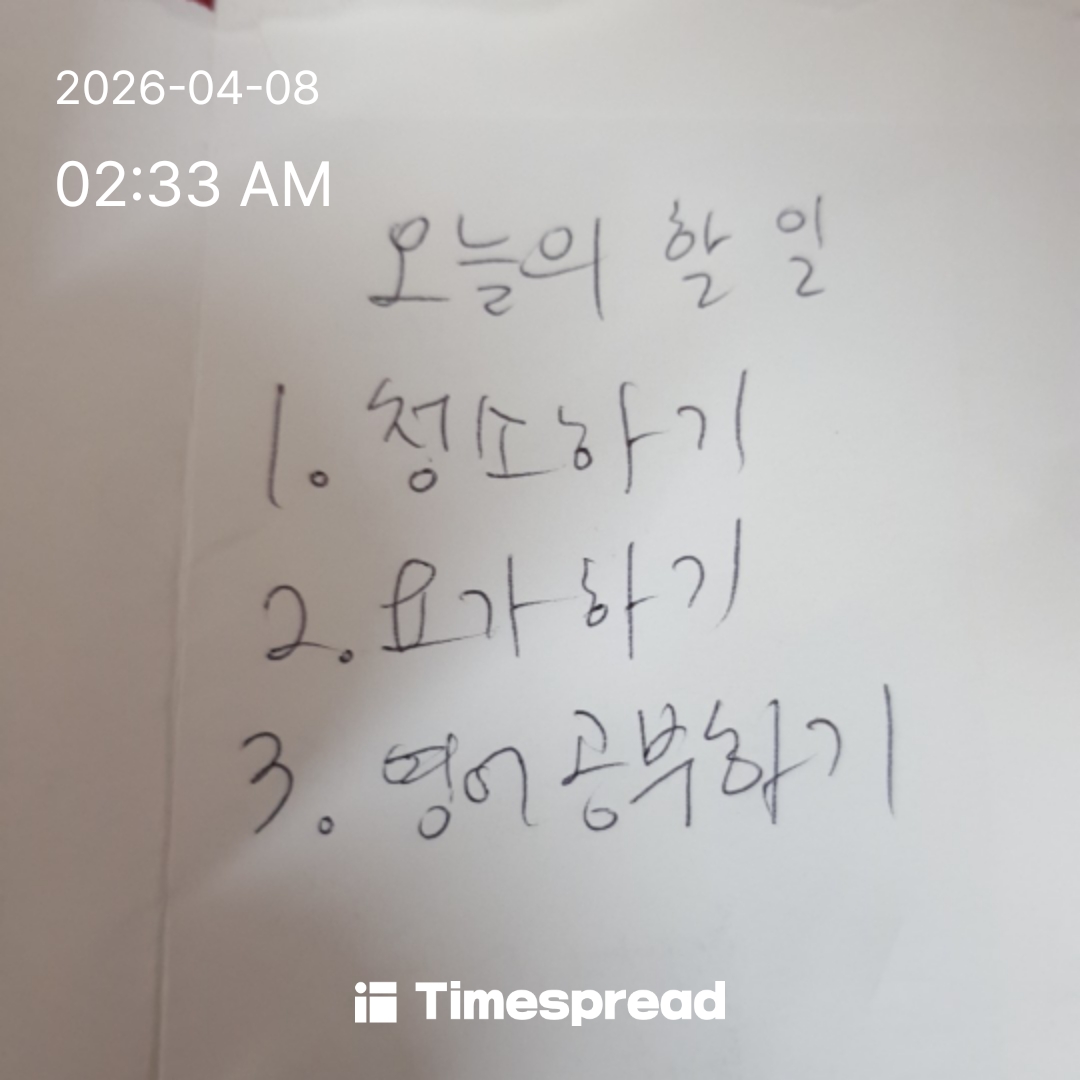 2026-04-08
02:33 AM
오늘의 할 일
1. 청소하기
2. 요가하기
3. 영어공부하기
Timespread